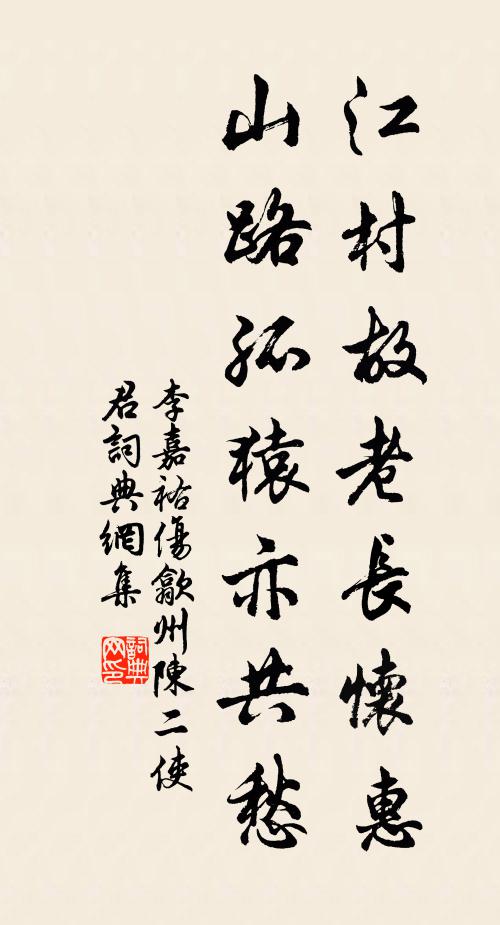 江村故老長懷惠
山路孤猿亦共愁
李嘉祐傷歙州陳二使
君詞典網集
詞典網印